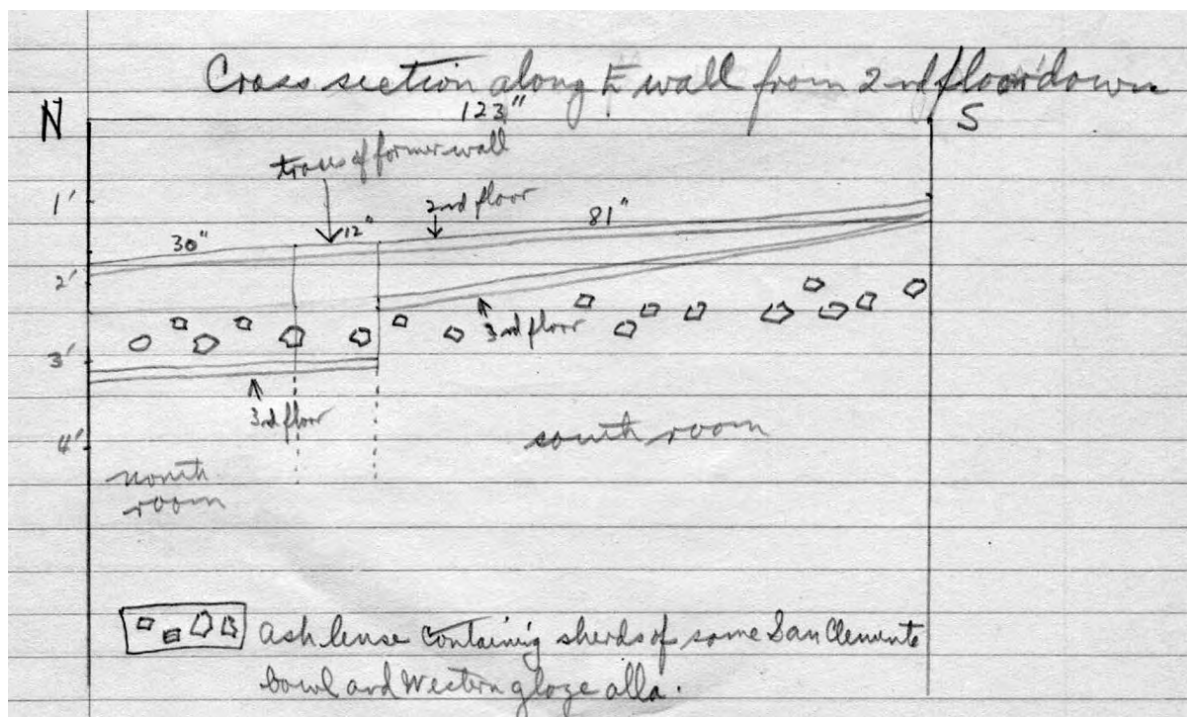 Cross section along E wall from 2nd floor down
N
123"
S
trace of former wall
1'
2nd floor
81"
12"
30"
2'
3rd floor
3'
3rd floor
4'
south room
north
room
ash lense containing sherds of same San Clemente
bowl and Western glaze olla.